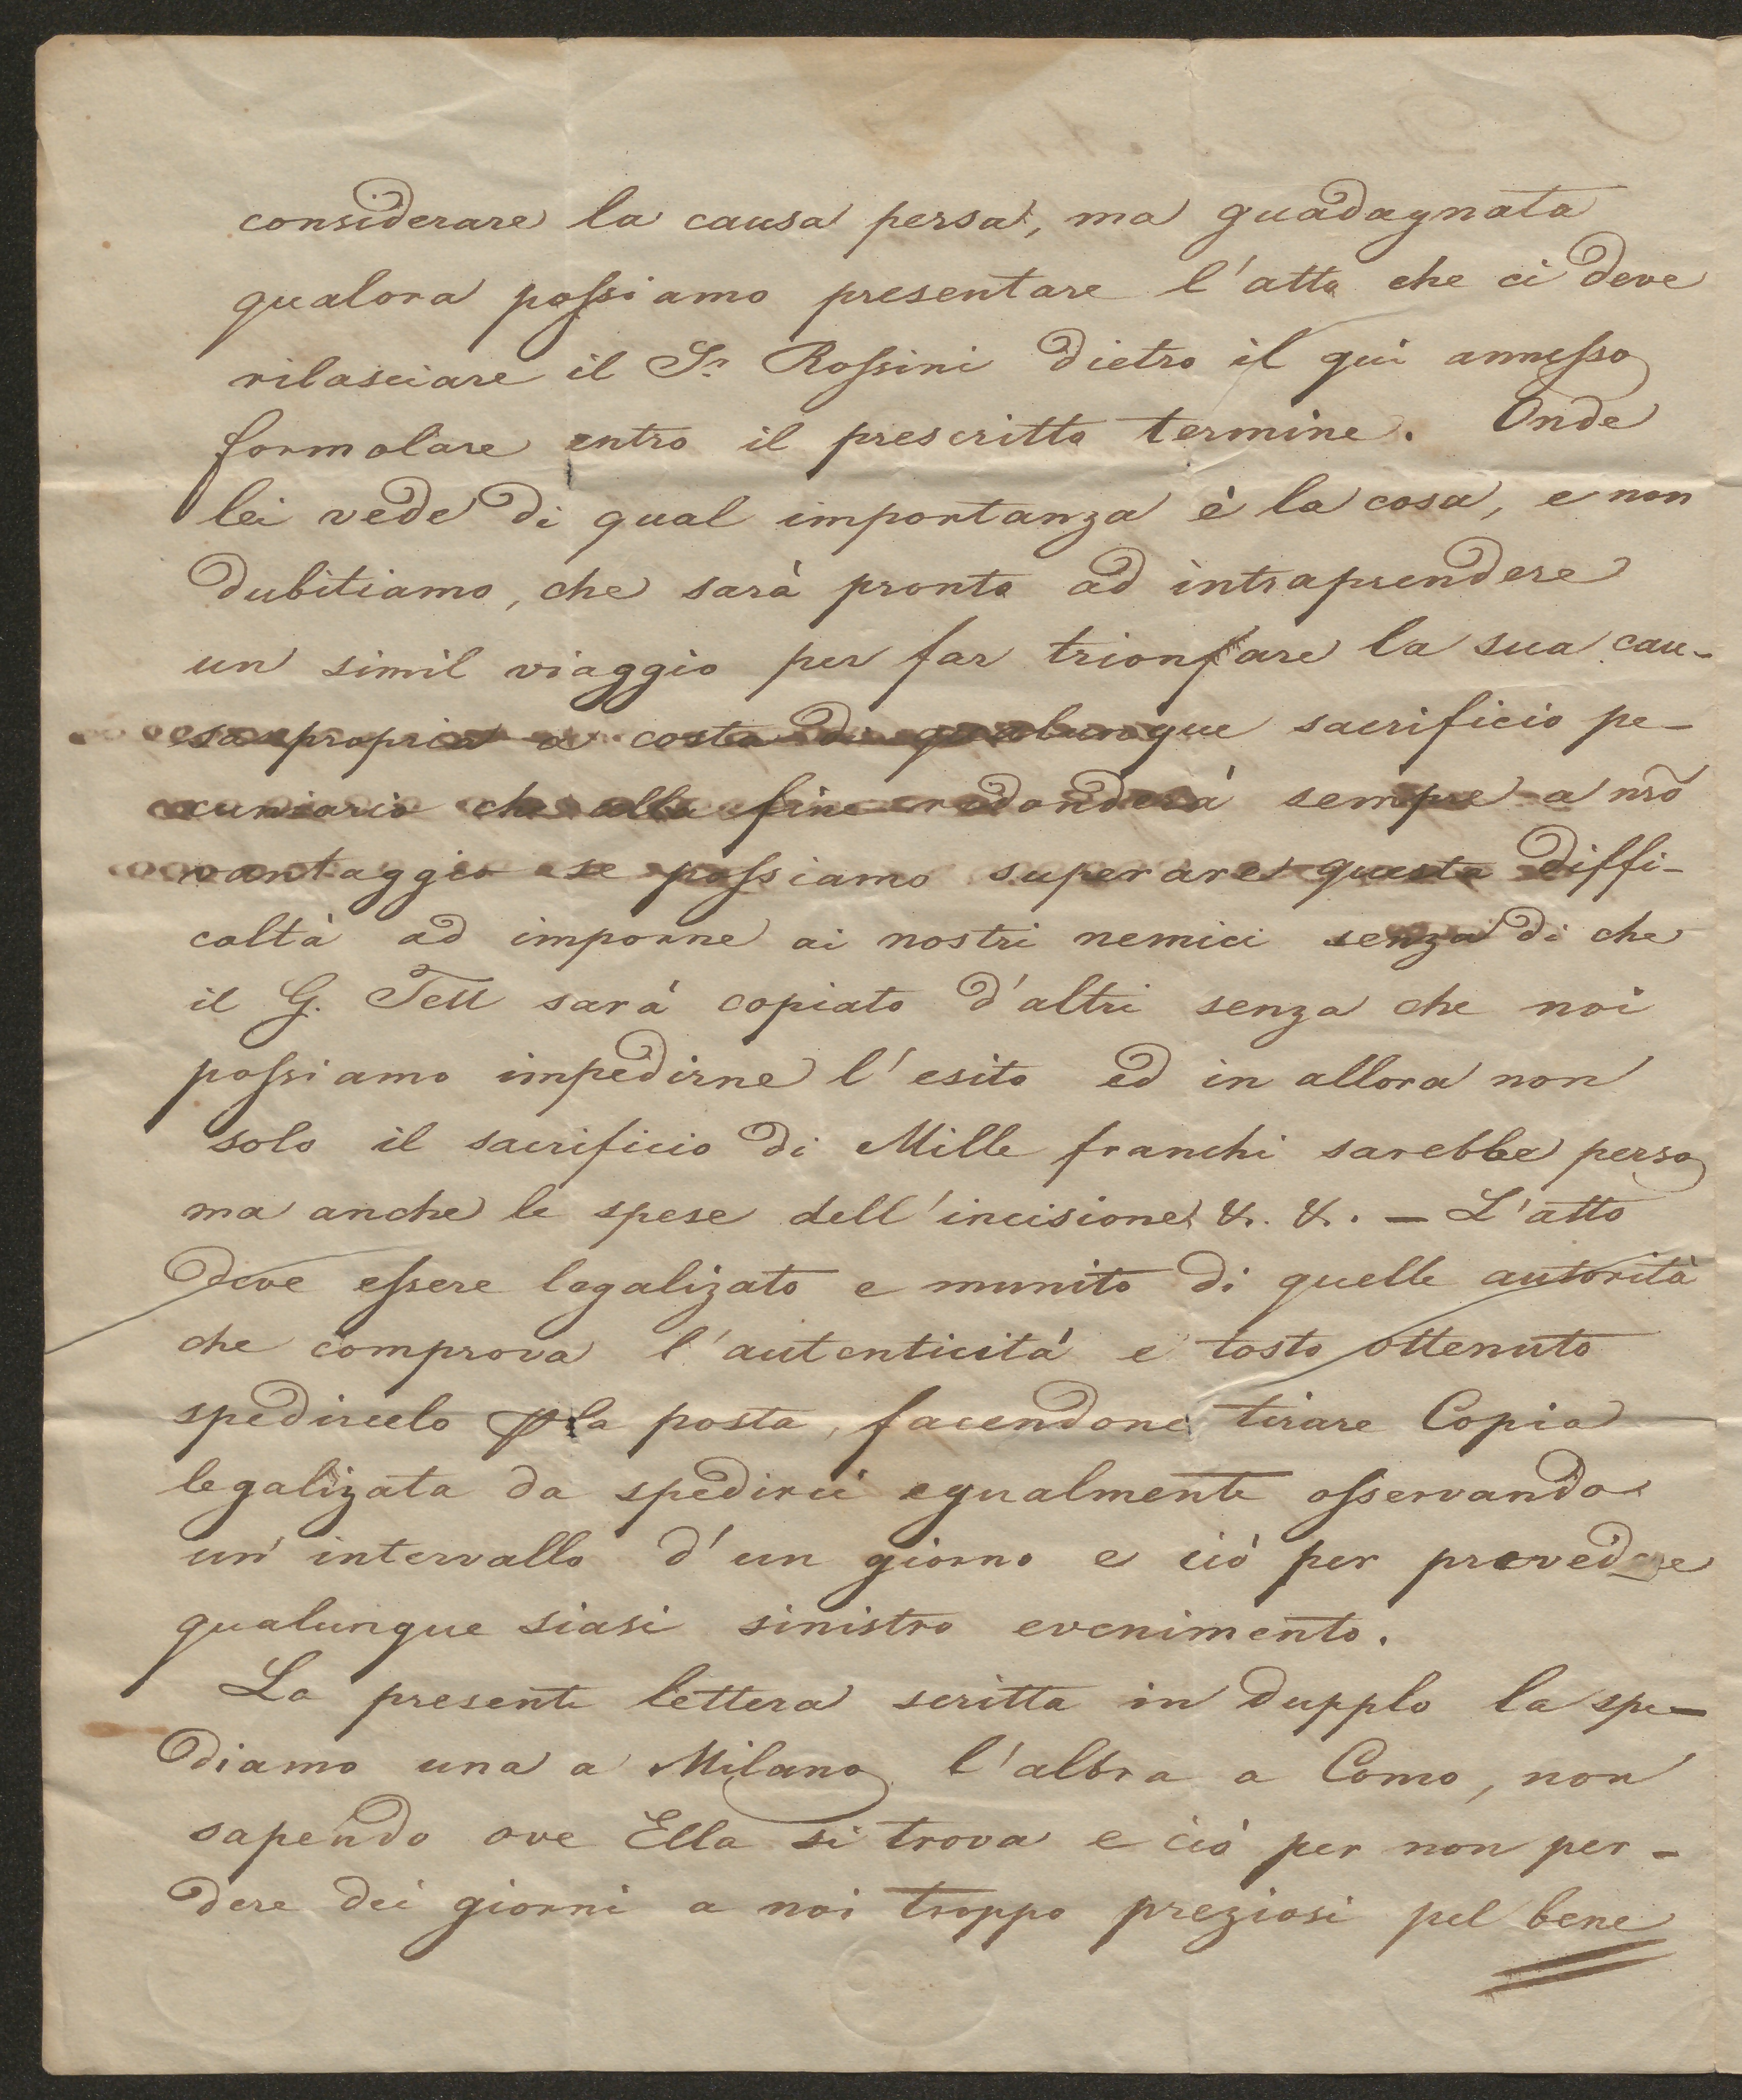 considerare la causa persa, ma guadagnata
qualora possiamo presentare l'atto che ci deve
rilasciare il Sr. Rossini dietro il qui annesso
formolare entro il prescritto termine. Onde
lei vede di qual importanza è la cosa, e non
dubitiamo, che sarà pronto ad intraprendere
un simil viaggio per far trionfare la sua cau-
sa propria a costo di qualunque sacrificio pe-
cuniario che alla fine redonderà sempre a nrõ
vantaggio se possiamo superare questa diffi-
coltà ad imporne ai nostri nemici senza di che
il G. Tell sarà copiato d'altri senza che noi
possiamo impedirne l'esito ed in allora non
solo il sacrificio di Mille franchi sarebbe perso
ma anche le spese dell'incisione &. &. — L'atto
deve essere legalizato e munito di quelle autorità
che comprova l'autenticità e tosto ottenuto
spedircelo p la posta, facendone tirare Copia
legalizata da spedirci egualmente osservando
un' intervallo d'un giorno e ciò per provedere
qualunque siasi sinistro evenimento.
La presente lettera scritta in dupplo la spe-
diamo una a Milano l'altra a Como, non
sapendo ove Ella si trova e ciò per non per-
dere dei giorni a noi troppo preziosi pel bene